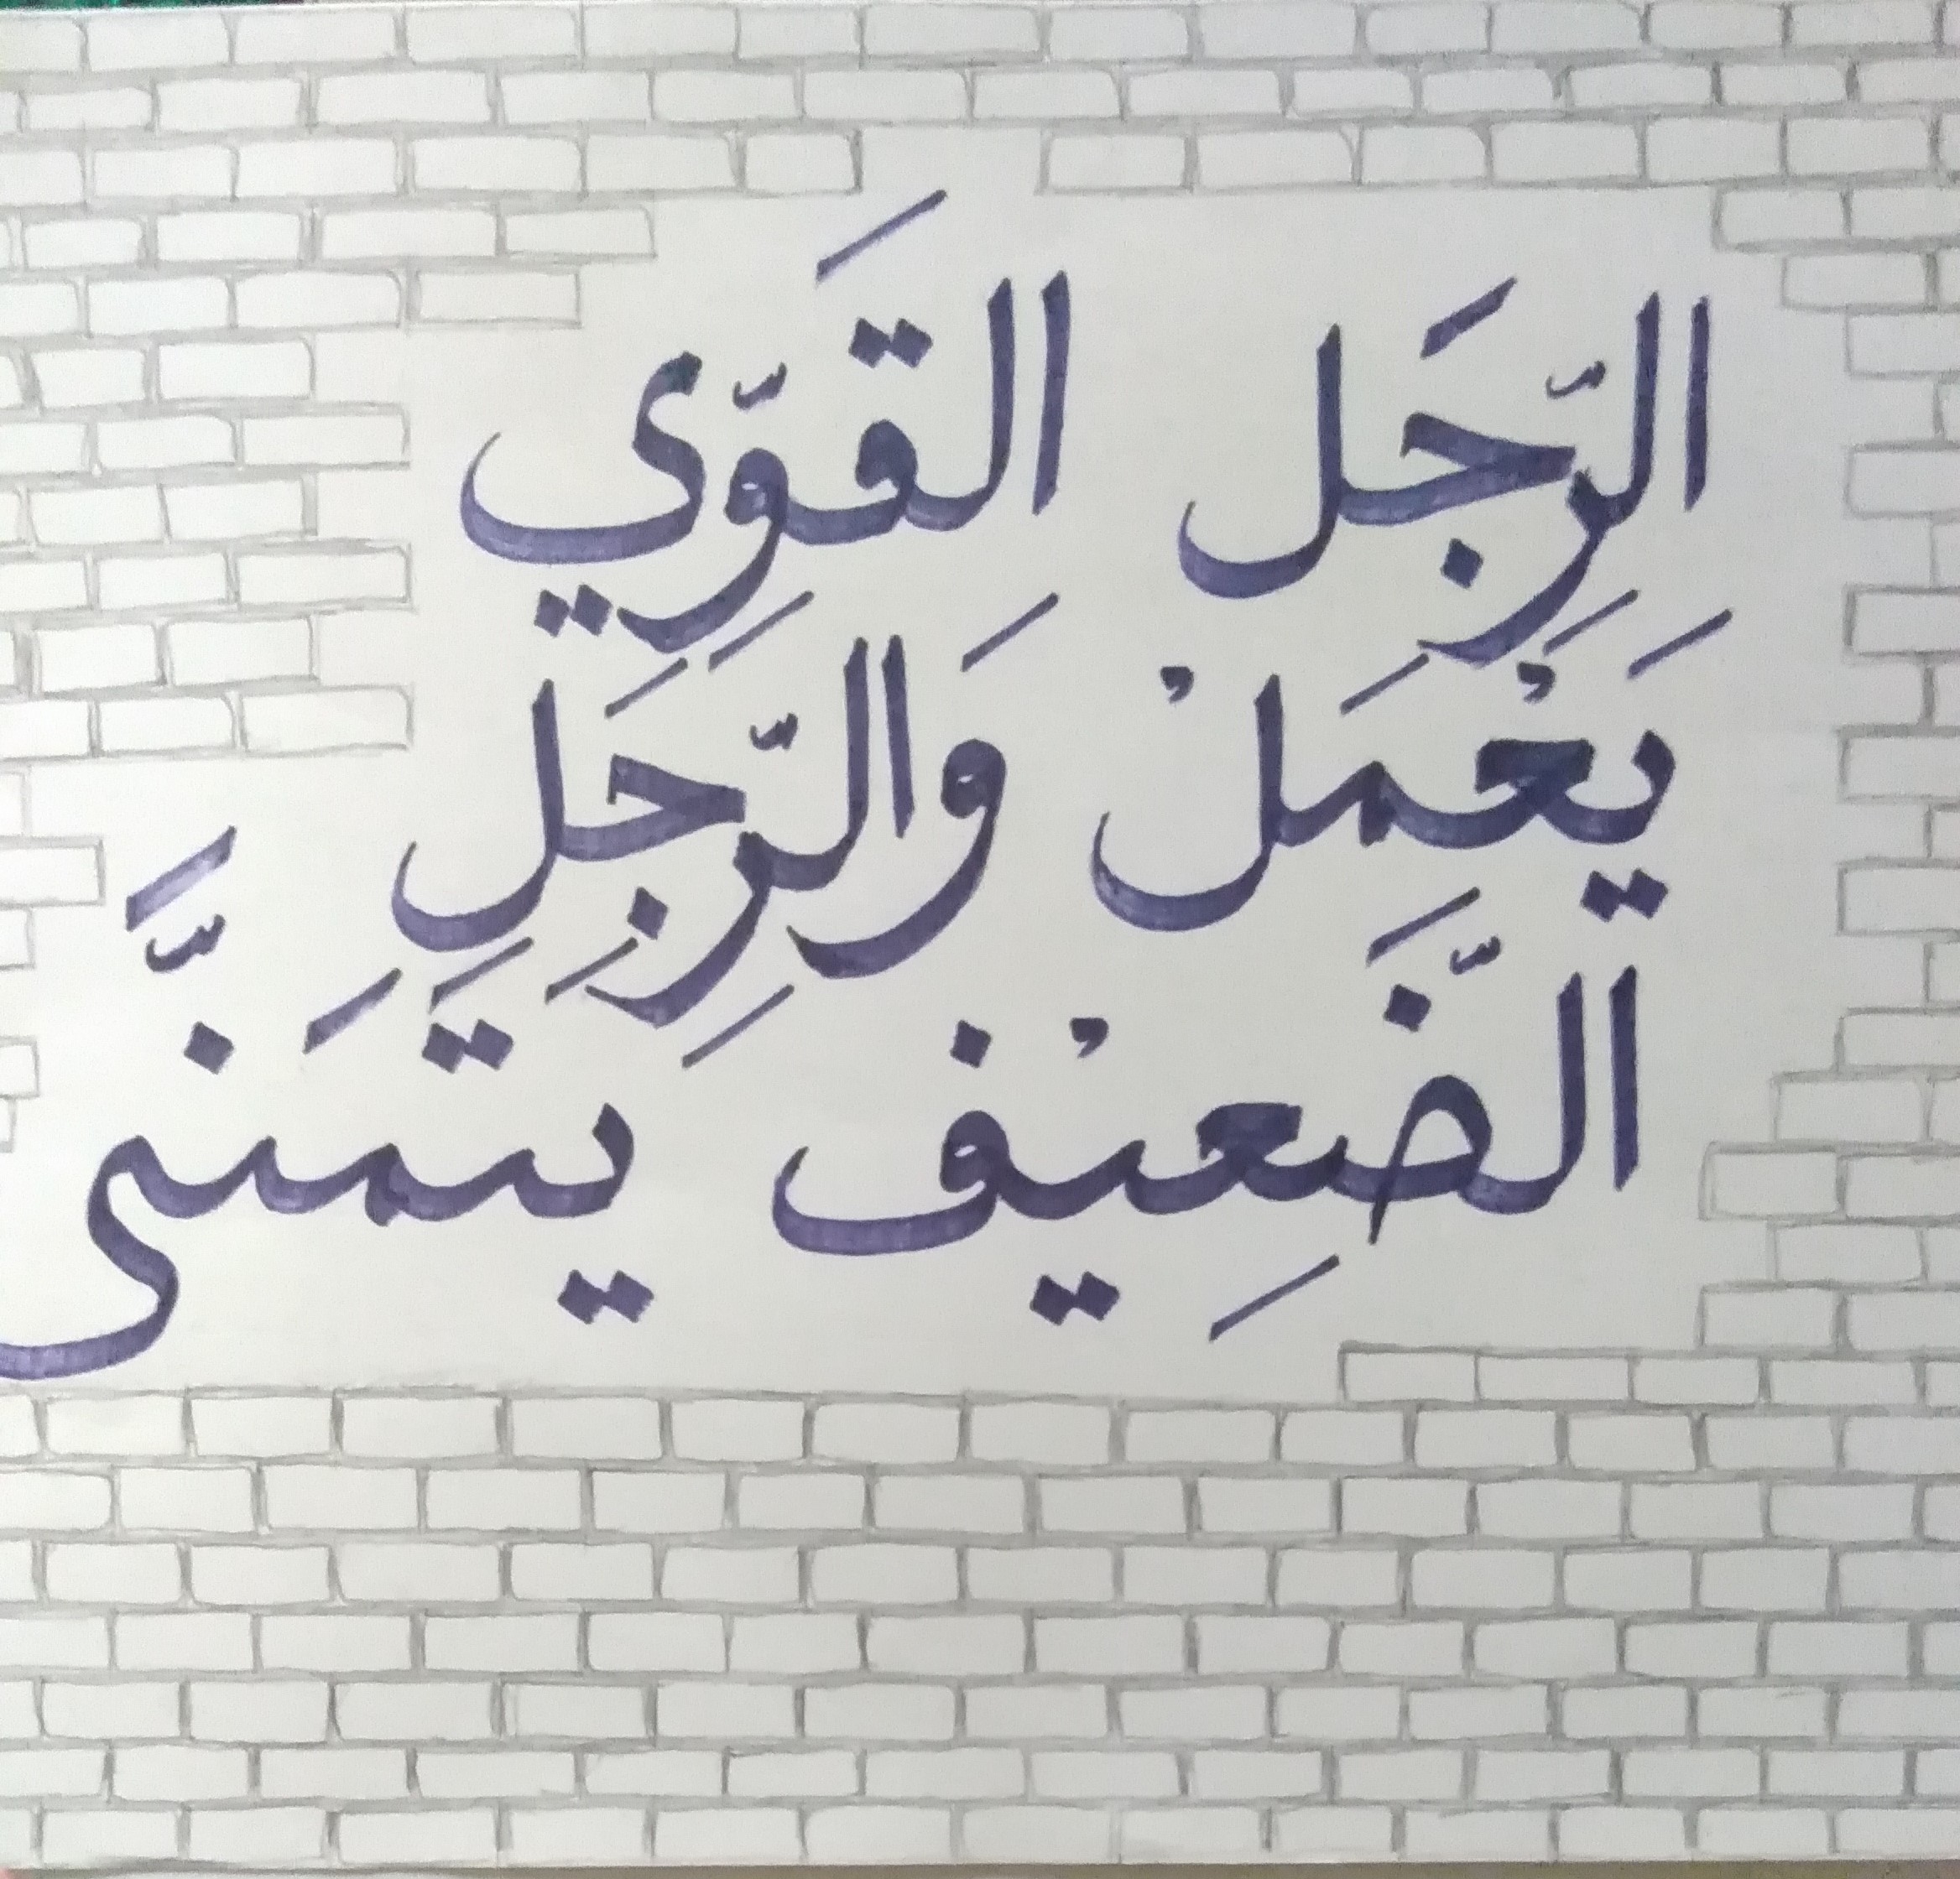 الرِّجَل القَوِّي
يَعْمَلْ وَالرِّجَلِ
الضَّعِيْف يتَمَنَّى